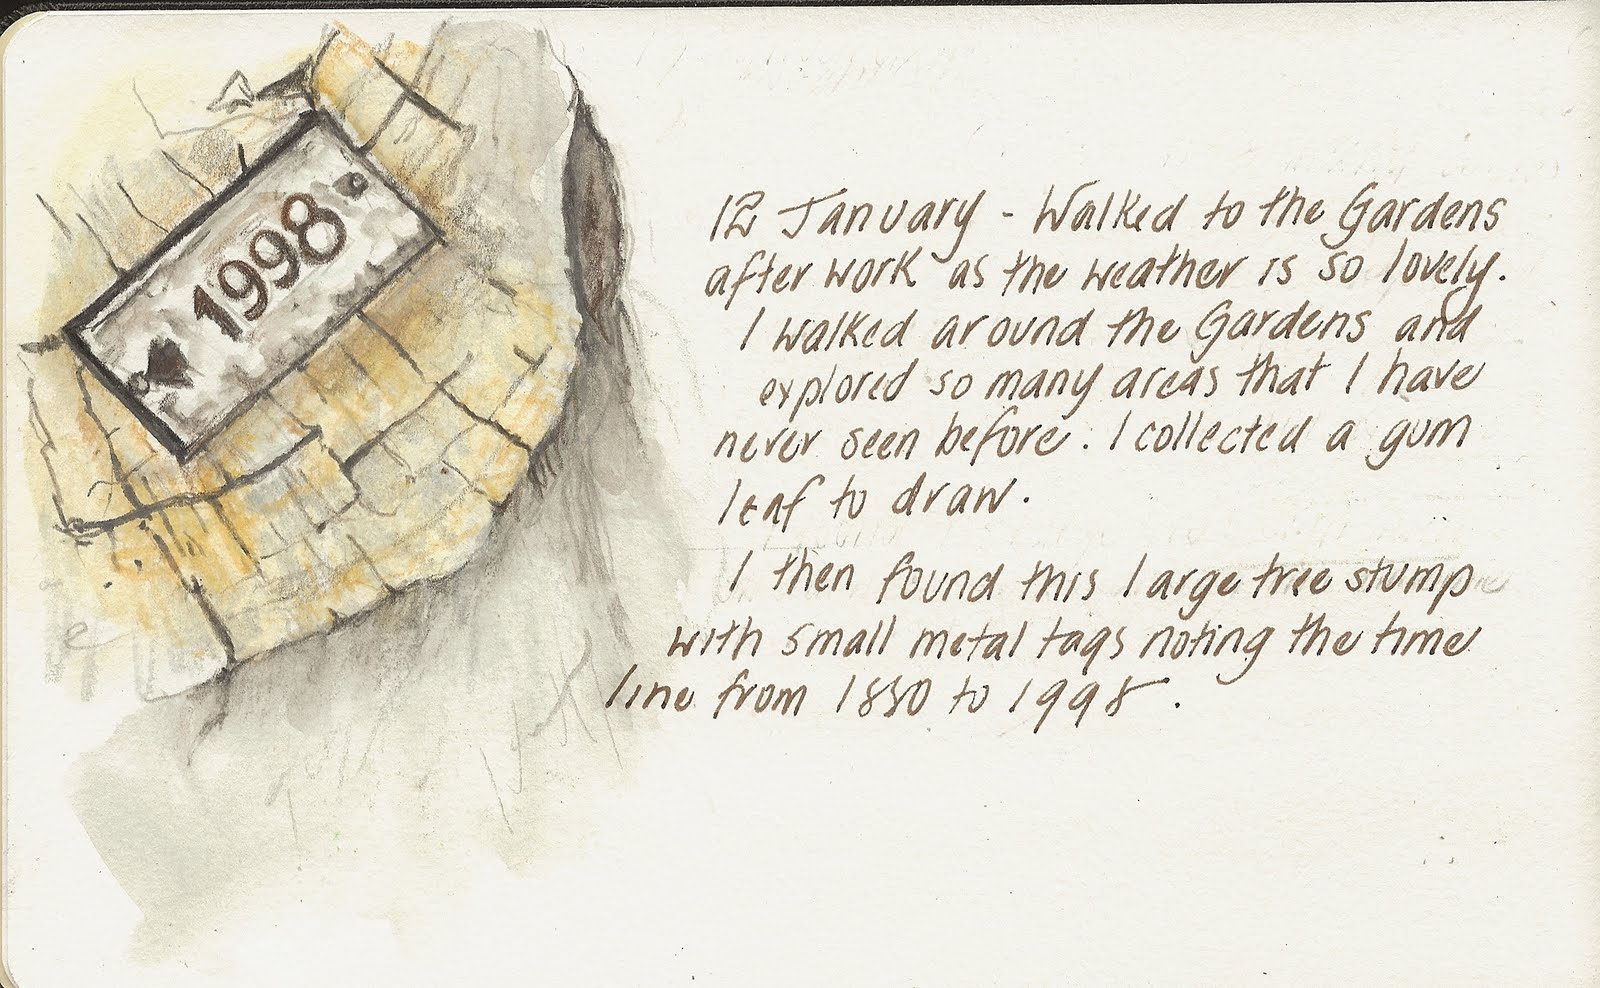 1998
12 January - Walked to the Gardens
after work as the weather is so lovely.
I walked around the Gardens and
explored so many areas that I have
never seen before. I collected a gum
leaf to draw.
I then found this large tree stump
with small metal tags noting the time
line from to 1998.